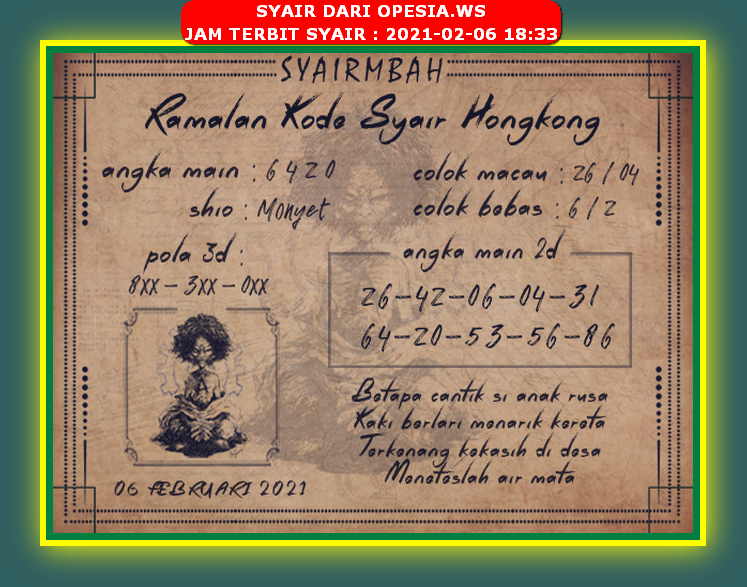 SYAIR DARI OPESIA.WS
JAM TERBIT SYAIR : 2021-02-06 18:33
SYAIRMBAH
Ramalan Kode Syair Hongkong
angka main : 6 4 2 0
colok macau : 26 / 04
shio : Monyet
colok bebas : 6 / 2
pola 3d :
8XX - 3XX - 0XX
angka main 2d
26-42-06-04-31
64-20-53-56-86
Betapa cantik si anak rusa
Kaki berlari menarik kereta
Terkenang kekasih di desa
Meneteslah air mata
06 FEBRUARI 2021